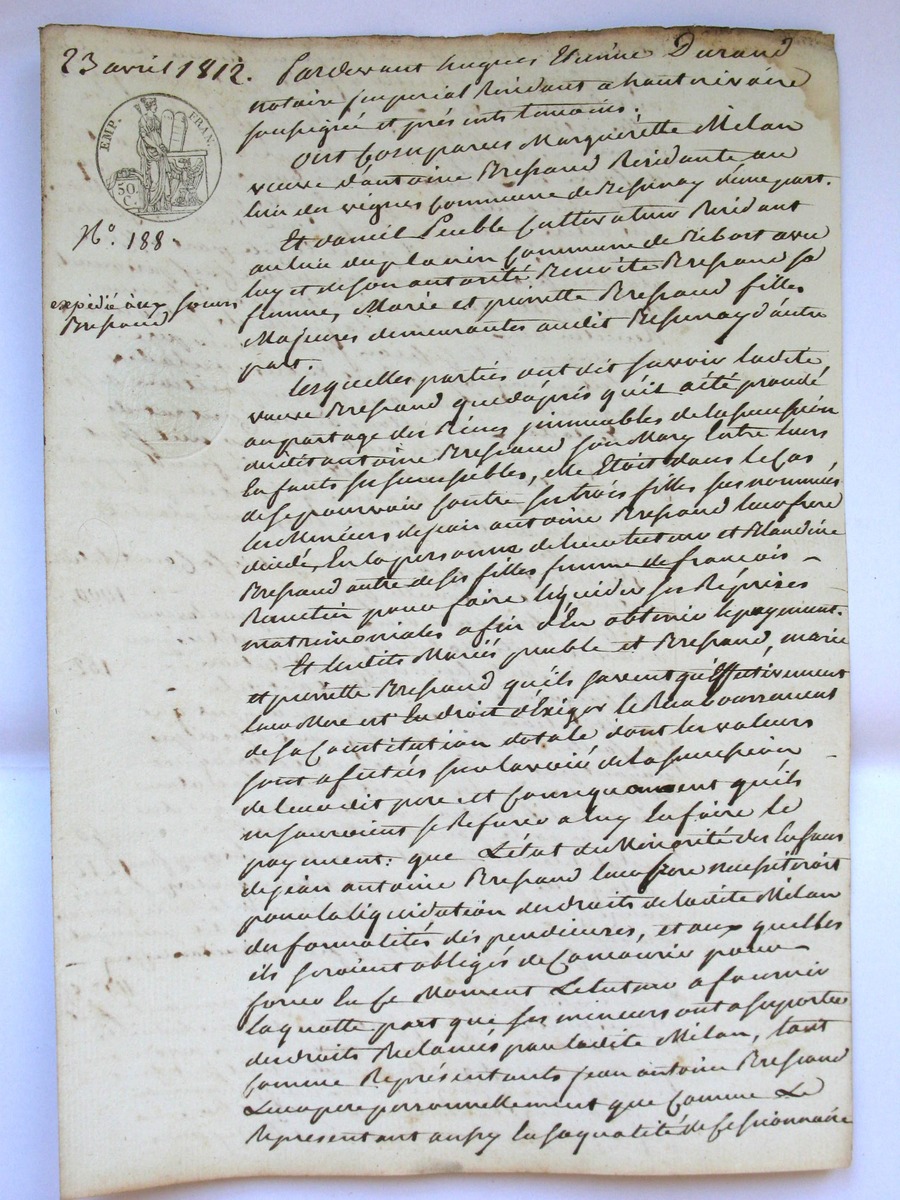 23 avril 1812.
EMP. FRAN.
50.
C.
N.o 188
expédié aux soeurs
Bressand
Pardevant hugues Etienne Durand
notaire jmperial Résidant a hautrivoire
soussigné et présents temoins.
Ont Comparues Marguérette Milan
veuve d'antoine Bressand Résidante au
lieu des vignes Commune de Bessenay d'une part.
Et daniel Peuble Cultivateur Résidant
au lieu du plavin Commune de Ribost avec
luy et de son autorité Benoite Bressand sa
femme, Marie et pierrette Bressand filles
Majeures demeurantes audit Bessenay d'autre
part.
Lesquelles parties ont dit savoir ladite
veuve Bressand que d'aprés qu'il a été procédé
au partage des Biens jmmeubles de la succession
dudit antoine Bressand son Mary Entre leurs
Enfants successibles, elle Etoit dans le Cas
de se pourvoir Contre ses trois filles sus nommées
les Mineurs de jean antoine Bressand leur frere
décédé En la personne de leur tuteur et Blandine
Bressand autre de ses filles femme de françois
pour faire liquider ses Réprises
matrimoniales afin d'En obtenir le payement.
Et lesdits Mariés peuble et Bressand, marie
et pierrette Bressand qu'ils savent qu'Effectivement
leur Mere est En droit d'Exiger le Remboursement
de sa Constitution dotale dont les valeurs
sont afectés sur la de la succession
de leurdit pere et Conséquemment qu'ils
ne sauroient se Refuser a luy En faire le
payement: que L'état de Minorité des Enfans
de jean antoine Bressand leur frere necessiteroit
pour la liquidation des droits de ladite Milan
des formalités dispendieuses, et aux quelles
ils seroient obligés de Concourir pour
forcer En Ce Moment Le tuteur a fournir
la quotte part que ses mineurs ont a suporter
des droits Reclamés par ladite Milan, tant
Comme Représentants jean antoine Bressand
Leur pere personnellement que Comme Le
Representant aussy En sa qualité de Cessionnaire